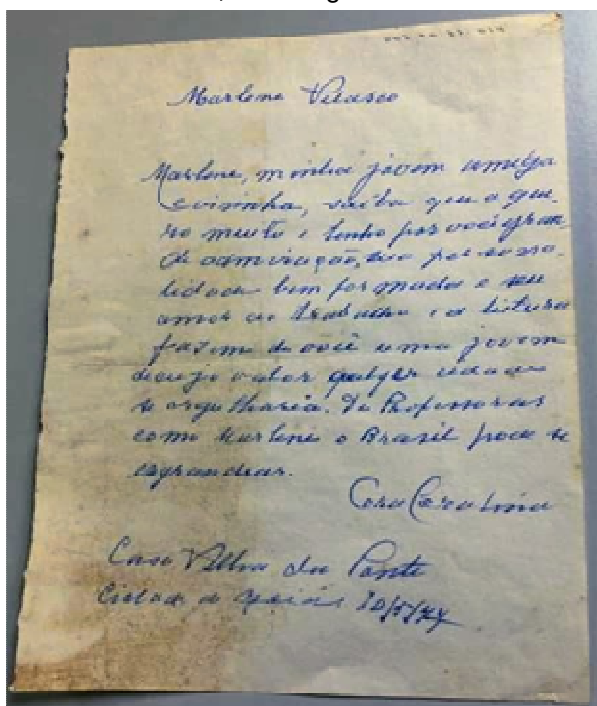 Marlene Velasco
Marlene, minha jovem amiga
e vizinha, saiba que a que-
ro muito e tenho por você gran-
de admiração, sua persona-
lidade bem formada e seu
amor ao trabalho e a leitura
fazem de você uma jovem
de cujo valor cidade
se orgulharia. De Professoras
como Marlene o Brasil pode se
engrandecer.
Cora Coralina
Casa Velha da Ponte
Cidade de Goiás